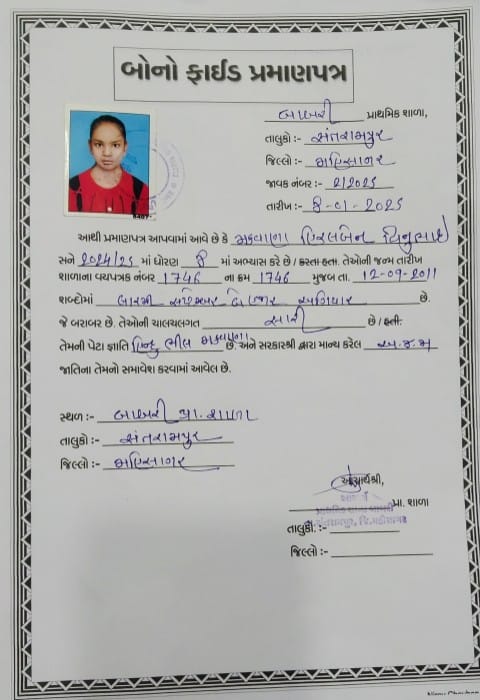 બોનો ફાઈડ પ્રમાણપત્ર
પ્રાથમિક શાળા,
તાલુકો :- સંતરામપુર
જિલ્લો :- મહિસાગર
જાવક નંબર :- 2/2025
તારીખ :- 8-01-2025
આથી પ્રમાણપત્ર આપવામાં આવે છે કે મકવાણા હિરલબેન વિનુભાઈ
સને 2024/25 માં ધોરણ 8 માં અભ્યાસ કરે છે / કરતા હતા. તેઓની જન્મ તારીખ
શાળાના વયપત્રક નંબર 1746 ના ક્રમ 1746 મુજબ તા. 12-09-2011
શબ્દોમાં બારમી સપ્ટેમ્બર બે હજાર અગિયાર છે.
જે બરાબર છે. તેઓની ચાલચલગત સારી છે / હતી.
તેમની પેટા જ્ઞાતિ હિન્દુ ભીલ મકવાણા છે. અને સરકારશ્રી દ્વારા માન્ય કરેલ અ.જ.જા
જાતિના તેમનો સમાવેશ કરવામાં આવેલ છે.
સ્થળ :- પ્રા. શાળા
તાલુકો :- સંતરામપુર
જિલ્લો :- મહિસાગર
આચાર્યશ્રી,
આચાર્ય
પ્રા. શાળા
તાલુકો :-
જિલ્લો :-